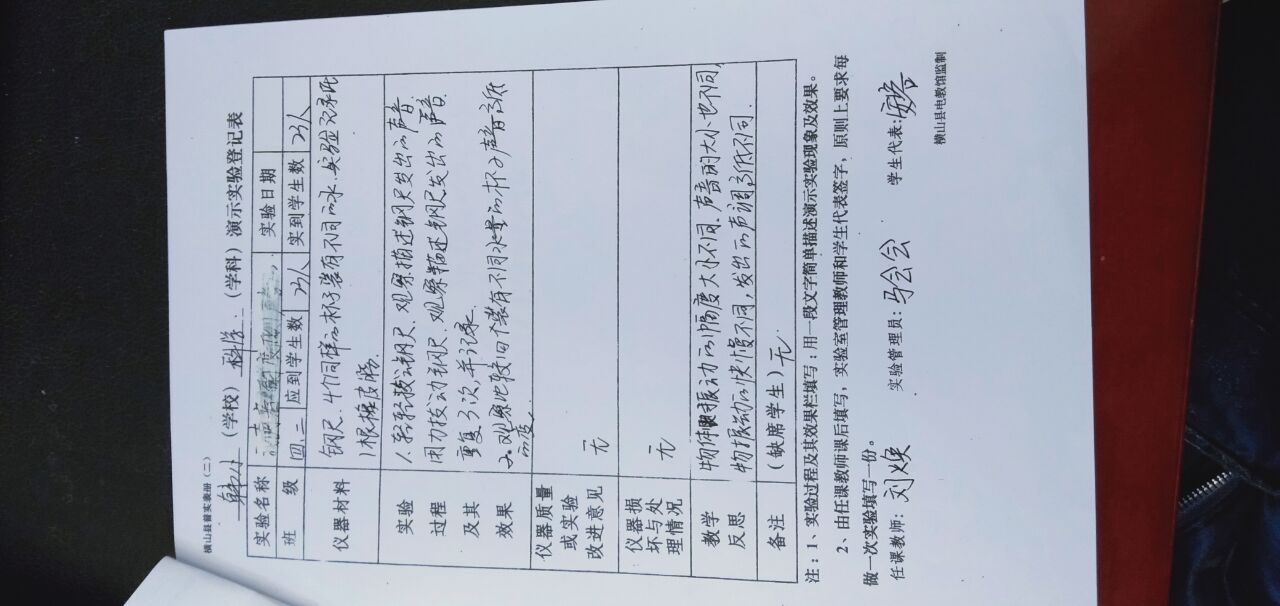 横山县普实表册（二）
韩小（学校）科学（学科）演示实验登记表
实验名称 实验日期
班 级 四.二 应到学生数 23人 实到学生数 23人
仪器材料 钢尺.4个同样的杯子装有不同的水.实验记录纸
1根橡皮筋.
实验过程及其效果 1.轻轻拨动钢尺.观察描述钢尺发出的声音.
用力拨动钢尺.观察描述钢尺发出的声音.
重复3次,并记录.
2.观察比较4个装有不同水量的杯子声音高低
的变
仪器质量或实验改进意见 无
仪器损坏与处理情况 无
教学反思 物体振动的幅度大小不同.声音的大小也不同,
物振动的快慢不同,发出的声调高低不同.
备注 （缺席学生）无
注：1、实验过程及其效果栏填写：用一段文字简单描述演示实验现象及效果。
2、由任课教师课后填写，实验室管理教师和学生代表签字，原则上要求每
做一次实验填写一份。
任课教师：刘焕 实验管理员：马会会 学生代表：
横山县电教馆监制